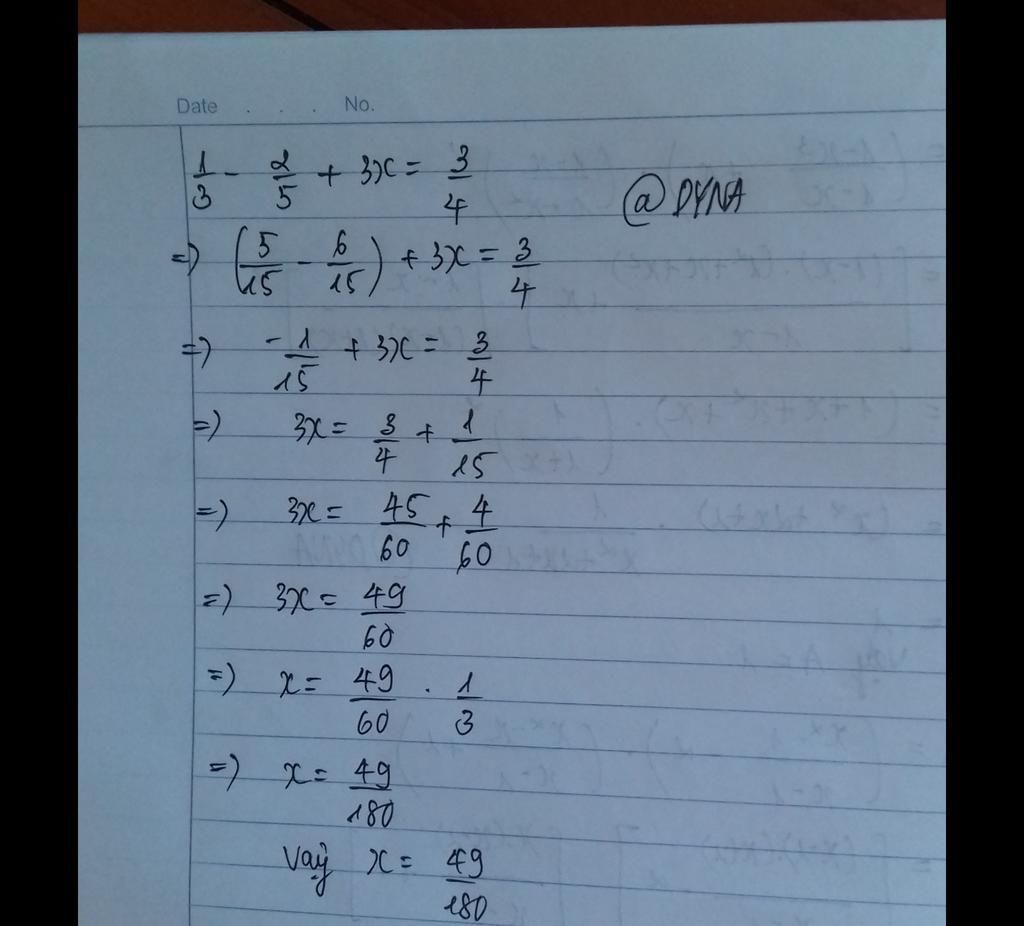 Date . . . No.
1/3 - 2/5 + 3x = 3/4
@DYNA
=) (5/15 - 6/15) + 3x = 3/4
=) -1/15 + 3x = 3/4
=) 3x = 3/4 + 1/15
=) 3x = 45/60 + 4/60
=) 3x = 49/60
=) x = 49/60 . 1/3
=) x = 49/180
Vậy x = 49/180